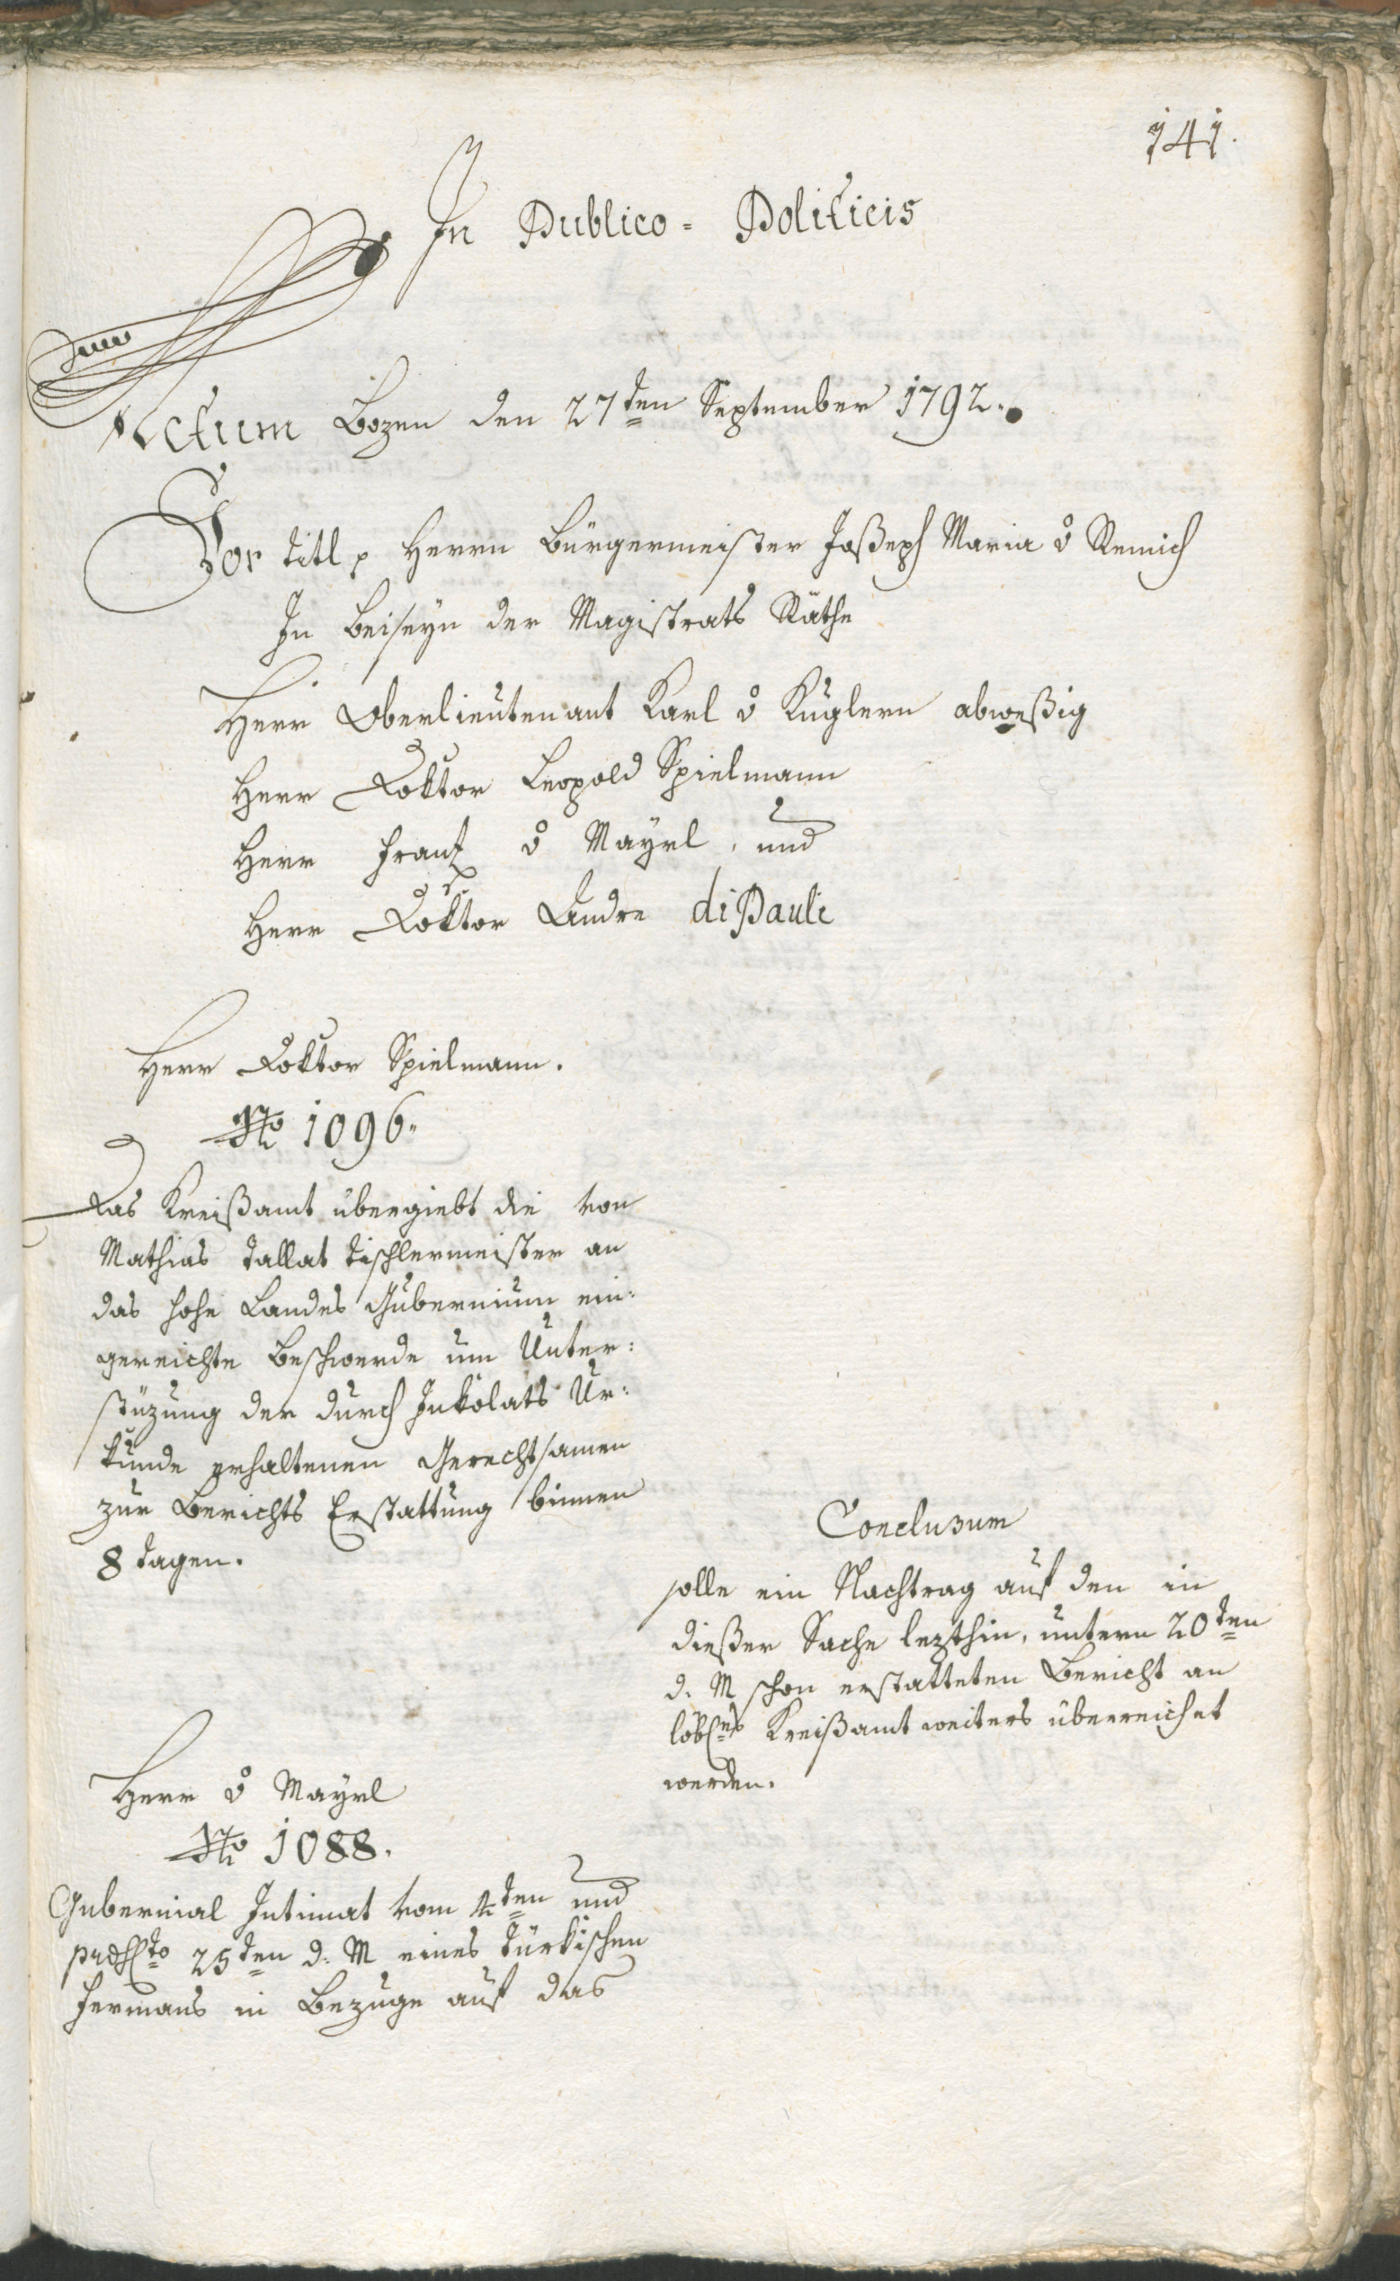 141.
In Publico = Politicis
Actum Bozen den 27ten September 1792.
Vor titl. Herrn Bürgermeister Joßeph Maria v Remich
In Beiseyn der Magistrats Räthe
Herr Oberlieutenant Karl v Kuglern abweßig
Herr Doktor Leopold Spielmann
Herr Franz v Mayrl, und
Herr Doktor Andre diPauli
Herr Doktor Spielmann.
No 1096.
Das Kreißamt übergiebt die von
Mathias Tallat Tischlermeister an
das hohe Landes Gubernium ein:
gereichte Beschwerde um Unter:
stüzung der durch Inkolats Ur:
kunde erhaltenen Gerechtsamen
zur Berichts Erstattung binnen
8 Tagen.
Conclusum
solle ein Nachtrag auf den in
dießer Sache lezthin, untern 20ten
d. M schon erstatteten Bericht an
löbes Kreißamt weiters überreichet
werden.
Herr v Mayrl
No 1088.
Gubernial Intimat vom 4ten und
25ten d. M eines türkischen
Fermans in Bezuge auf das